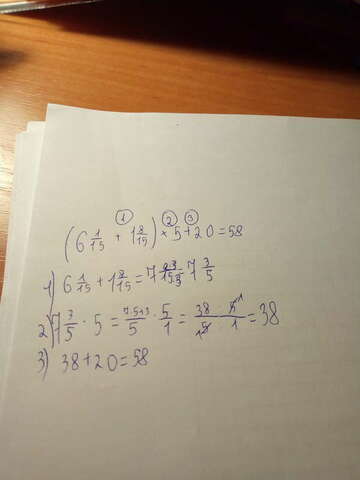 ① ② ③
(6 1/15 + 1 8/15) × 5 + 20 = 58
1) 6 1/15 + 1 8/15 = 7 9 3/15 5 = 7 3/5
2) 7 3/5 · 5 = 7·5+3/5 · 5/1 = 38 · 5 1/1 5 · 1 = 38
3) 38 + 20 = 58